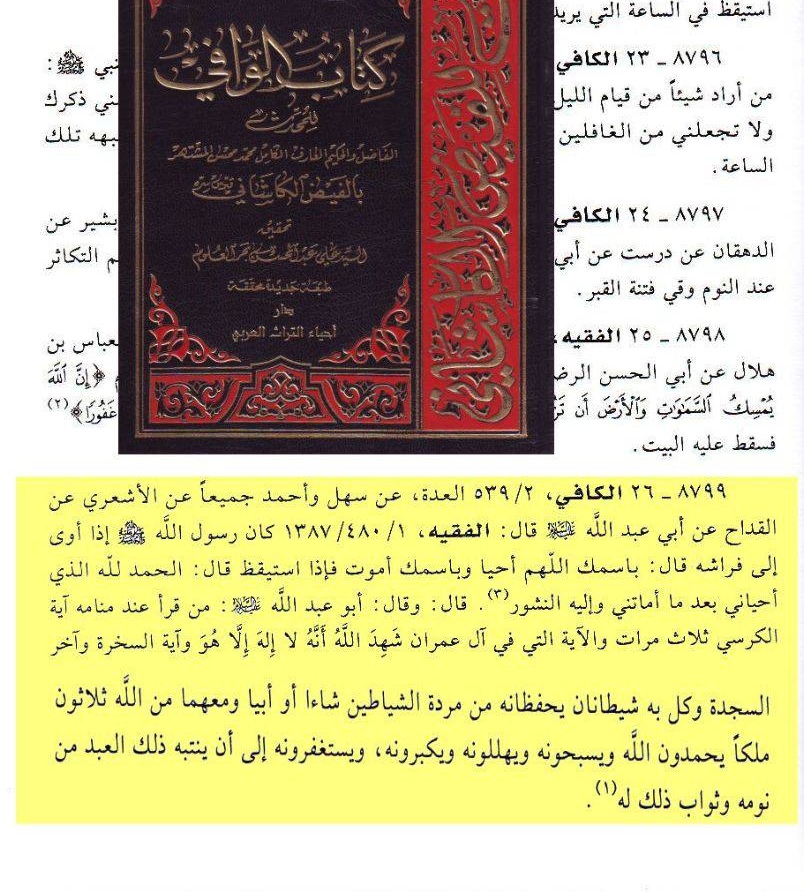 استيقظ في الساعة التي يريد
٨٧٩٦ ـ ٢٣ الكافي
نبي ﷺ :
من أراد شيئاً من قيام الليل
ني ذكرك
ولا تجعلني من الغافلين
بهه تلك
الساعة .
٨٧٩٧ ـ ٢٤ الكافي
بشير عن
الدهقان عن درست عن أبي
م التكاثر
عند النوم وقي فتنة القبر .
٨٧٩٨ ـ ٢٥ الفقيه،
لعباس بن
هلال عن أبي الحسن الرض
﴿إِنَّ اللَّهَ
يُمْسِكُ السَّمَوَاتِ وَالْأَرْضَ أَن تَزُ
غَفُورًا﴾(٢)
فسقط عليه البيت .
كتاب الوافي
للمحدث
الفاضل والحكيم العارف الكامل محمد محسن المشتهر
بالفيض الكاشاني قدس سره
تحقيق
السيد علي عبد المحسن بحر العلوم
طبعة جديدة محققة
دار
احياء التراث العربي
٨٧٩٩ ـ ٢٦ الكافي، ٥٣٩/٢ العدة، عن سهل وأحمد جميعاً عن الأشعري عن
القداح عن أبي عبد اللَّه عليه السلام قال: الفقيه، ١٣٨٧/٤٨٠/١ كان رسول اللَّه ﷺ إذا أوى
إلى فراشه قال: باسمك اللّهم أحيا وباسمك أموت فإذا استيقظ قال: الحمد للَّه الذي
أحياني بعد ما أماتني وإليه النشور(٣). قال: وقال: أبو عبد اللَّه عليه السلام: من قرأ عند منامه آية
الكرسي ثلاث مرات والآية التي في آل عمران شَهِدَ اللَّهُ أَنَّهُ لا إِلهَ إِلَّا هُوَ وآية السخرة وآخر
السجدة وكل به شيطانان يحفظانه من مردة الشياطين شاءا أو أبيا ومعهما من اللَّه ثلاثون
ملكاً يحمدون اللَّه ويسبحونه ويهللونه ويكبرونه، ويستغفرونه إلى أن ينتبه ذلك العبد من
نومه وثواب ذلك له(١).